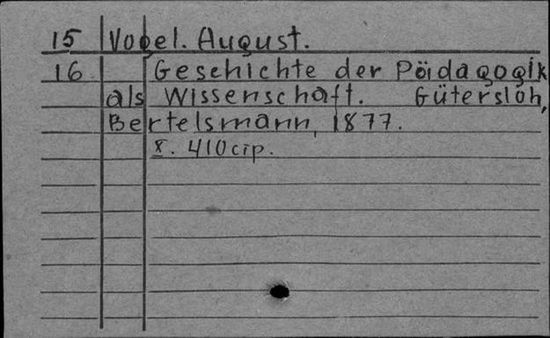 15 Vogel. August.
16 Geschichte der Pädagogik
als Wissenschaft. Gütersloh,
Bertelsmann, 1877.
8. 410 cip.